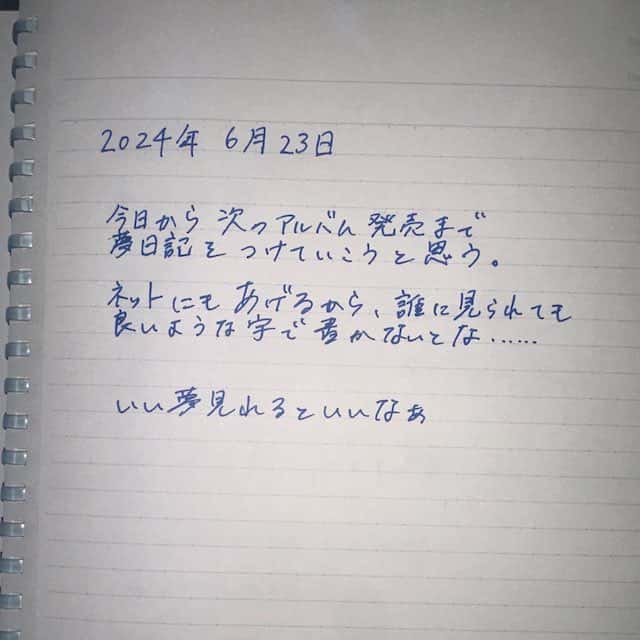 2024年 6月23日
今日から 次のアルバム 発売まで
夢日記を つけていこうと思う。
ネットにも あげるから、誰に見られても
良いような字で 書かないとな……
いい夢見れるといいなぁ